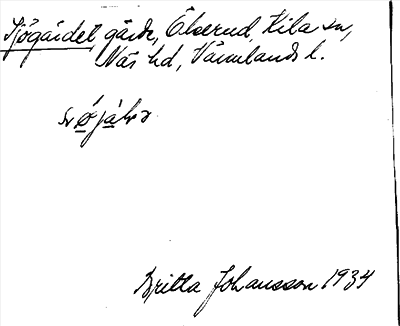 Sjögärdet, gärde, Ökerud, Kila sn,
Näs hd, Värmlands l.
Britta Johansson 1934